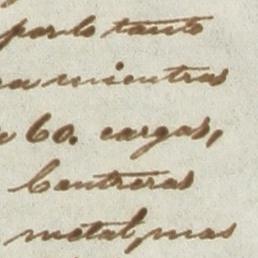 por lo tanto
mientras
60. cargas,
Contreras
metal, mas